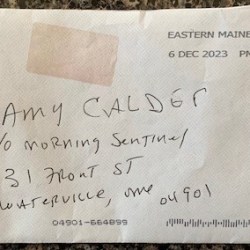 EASTERN MAINE
6 DEC 2023 PM
AMY CALDER
c/o MORNING SENTINEL
31 FRONT ST
WATERVILLE, ME
04901
04901-664899